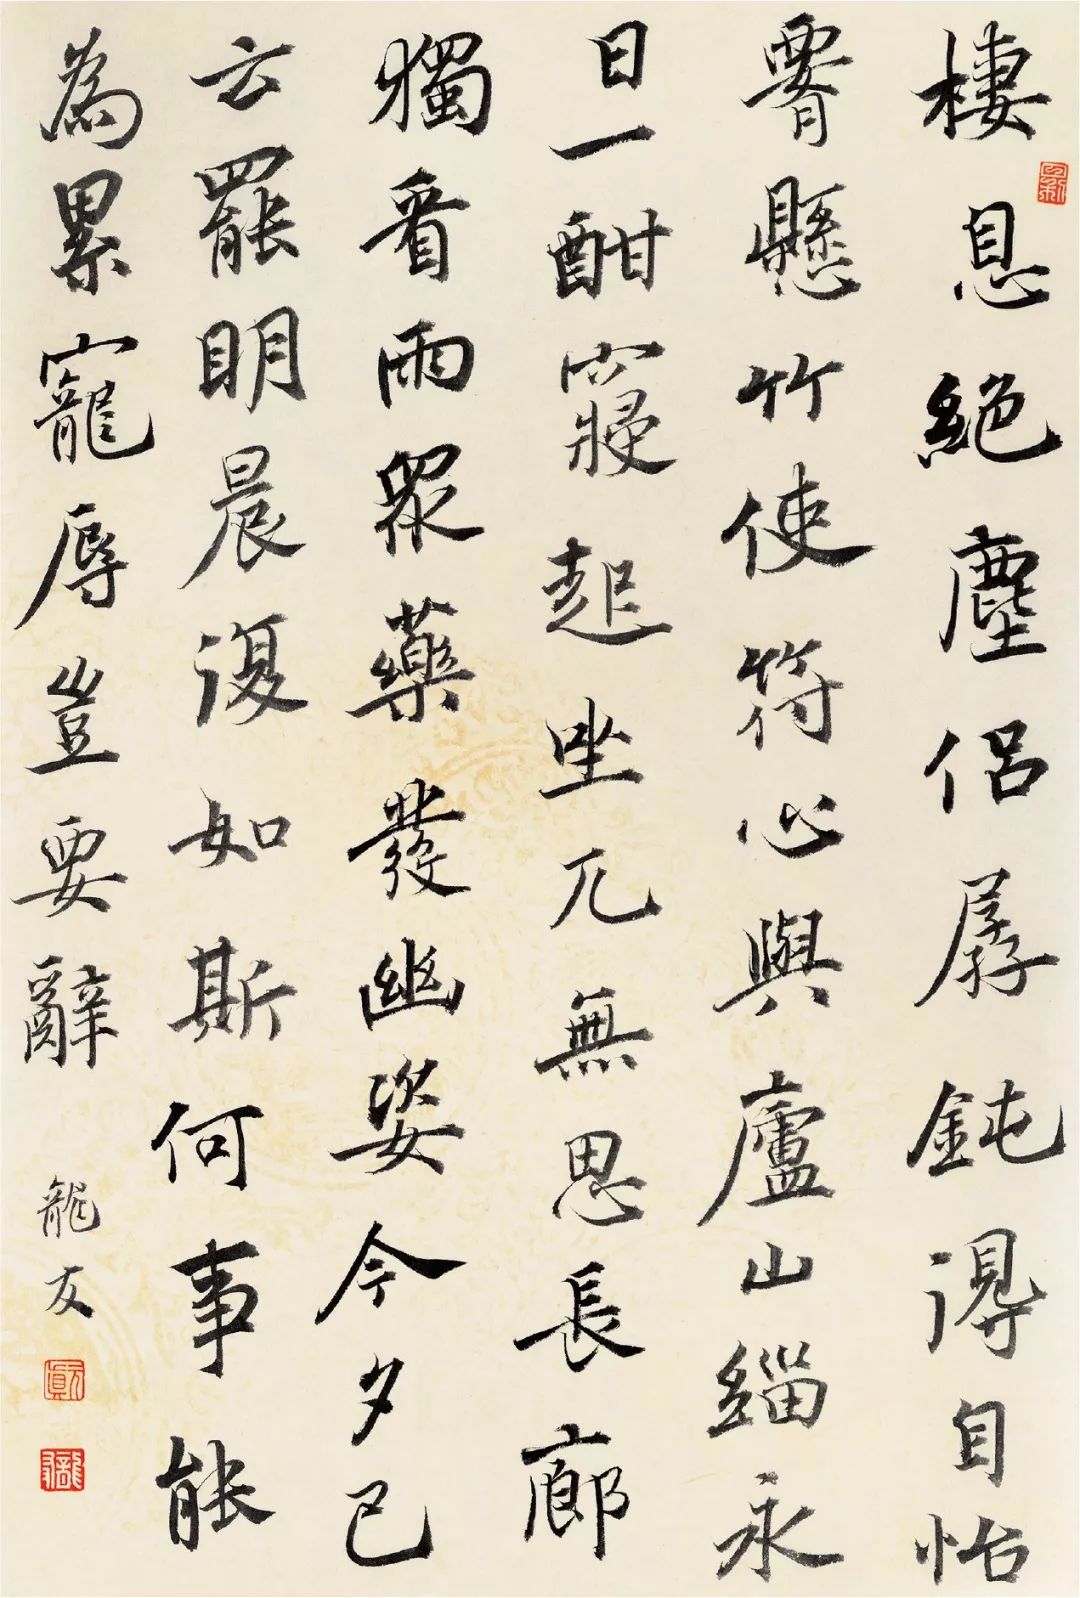 棲息絕塵侶孱鈍得自怡
腰懸竹使符心與廬山緇永
日一酣寢起坐兀無思長廊
獨看雨眾藥發幽姿今夕已
云罷明晨復如斯何事能
為累寵辱豈要辭
龍友